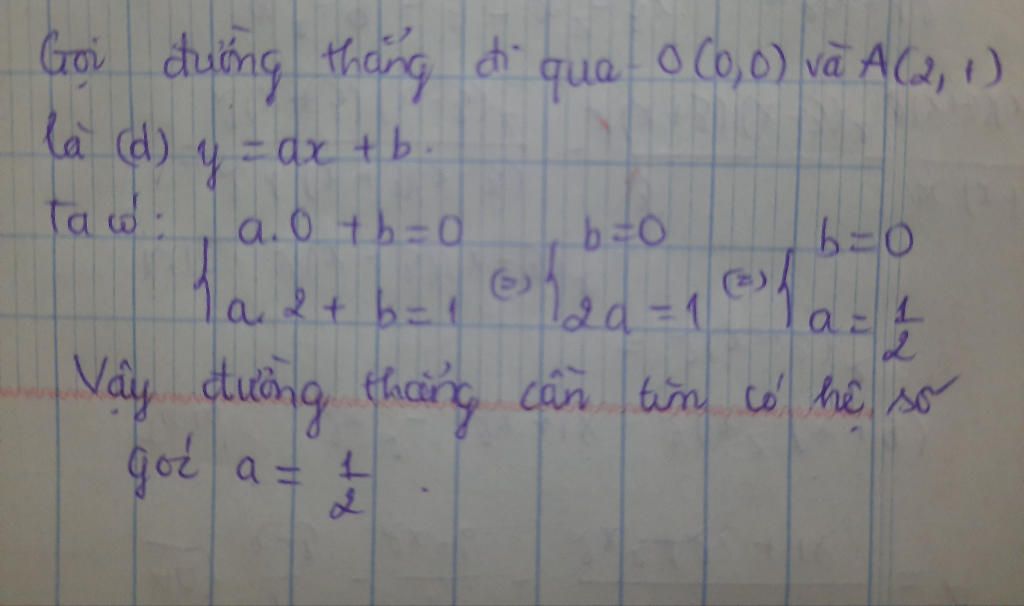 Gọi đường thẳng đi qua O(0,0) và A(2,1)
là (d) y = ax + b.
Ta có: { a.0 + b = 0 (=) { b = 0 (=) { b = 0
a.2 + b = 1 2a = 1 a = 1/2
Vậy đường thẳng cần tìm có hệ số
góc a = 1/2.